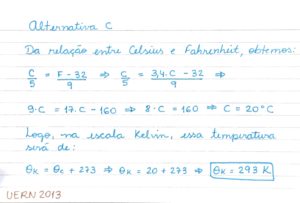 Alternativa C
Da relação entre Celsius e Fahrenheit, obtemos:
C/5 = F-32/9 ⇒ C/5 = 3,4·C - 32/9 ⇒
9·C = 17·C - 160 ⇒ 8·C = 160 ⇒ C = 20°C
Logo, na escala Kelvin, essa temperatura
será de:
θK = θC + 273 ⇒ θK = 20 + 273 ⇒ θK = 293 K
UERN 2013